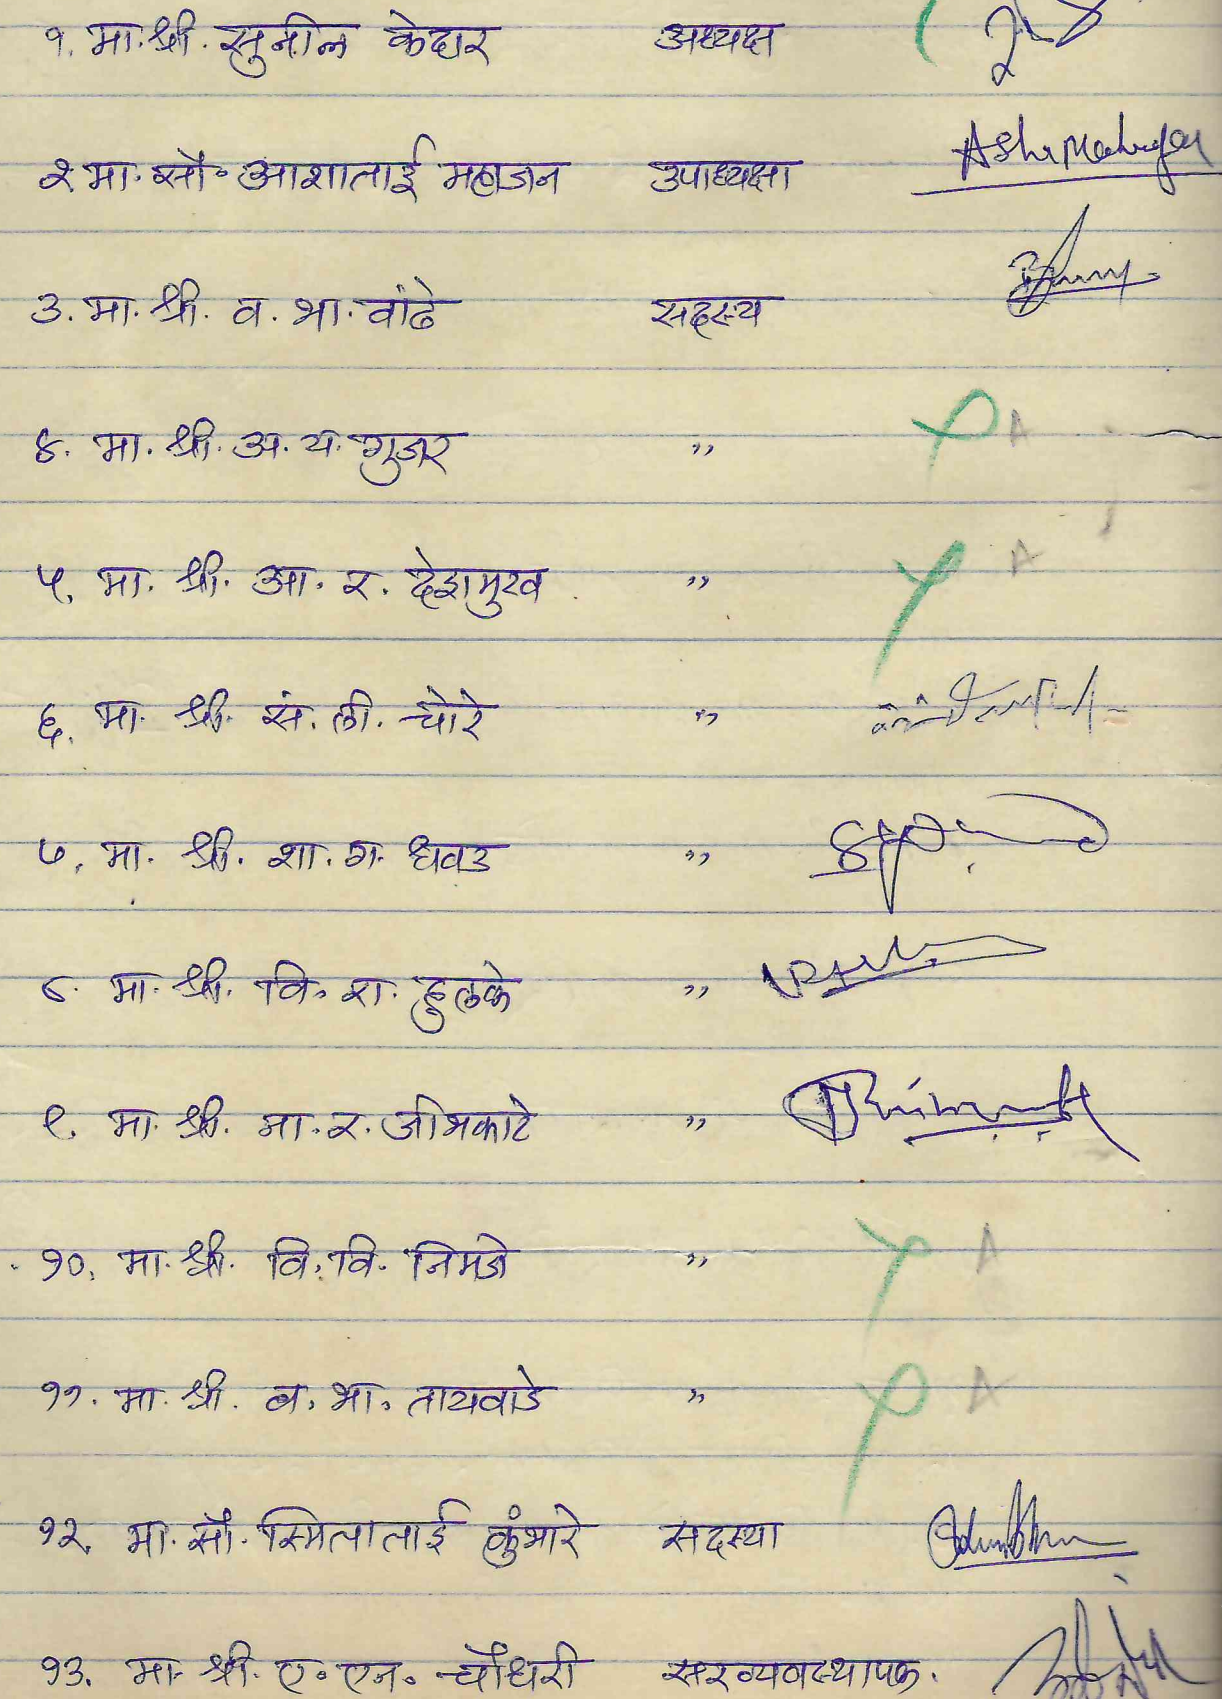 १. मा. श्री. सुनील केदार अध्यक्ष
२. मा. सौ. आशाताई महाजन उपाध्यक्षा
३. मा. श्री. व. भा. वांढे सदस्य
४. मा. श्री. अ. य. गुजर ,, A
५. मा. श्री. आ. र. देशमुख ,, A
६. मा. श्री. सं. ली. चोरे ,,
७. मा. श्री. शा. ग. धवड ,,
८. मा. श्री. वि. रा. हुलके ,,
९. मा. श्री. मा. र. जीभकाटे ,,
१०. मा. श्री. वि. वि. निमजे ,, A
११. मा. श्री. ब. भा. तायवाडे ,, A
१२. मा. सौ. स्मिताताई कुंभारे सदस्या
१३. मा. श्री. ए. एन. चौधरी सरव्यवस्थापक.